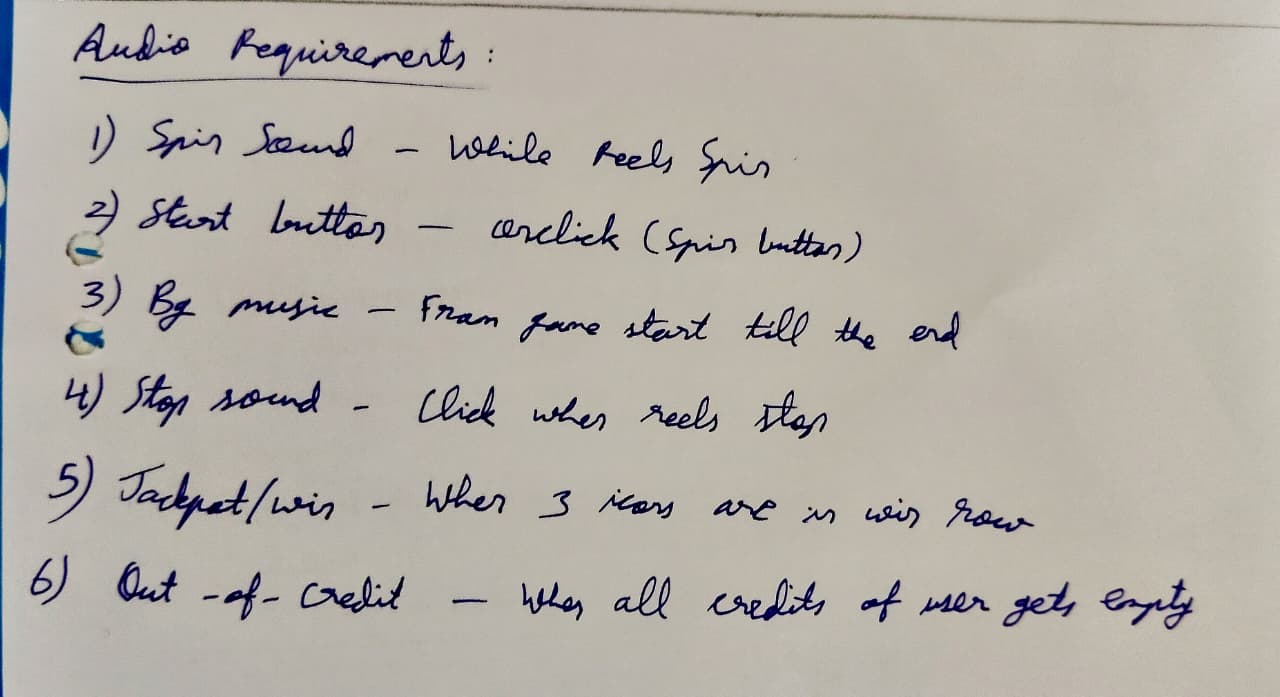 Audio Requirements :
1) Spin Sound - While Reels Spin
2) Start button - onclick (Spin button)
3) Bg music - From game start till the end
4) Stop sound - Click when reels stop
5) Jackpot/win - When 3 icons are in win row
6) Out-of-Credit - When all credits of user gets empty